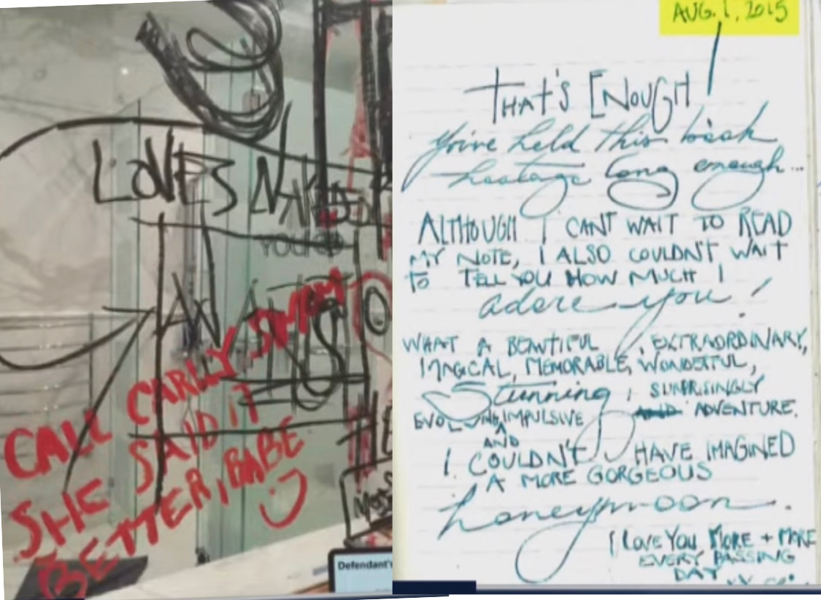 LOVES NAKED
YOU
AN
CALL CARLY SIMON
SHE SAID IT
BETTER, BABE
Defendant's
AUG. 1, 2015
THAT'S ENOUGH!
You've held this book
hostage long enough...
ALTHOUGH I CANT WAIT TO READ
MY NOTE, I ALSO COULDN'T WAIT
TO TELL YOU HOW MUCH I
adore you!
WHAT A BEAUTIFUL, EXTRAORDINARY,
MAGICAL, MEMORABLE, WONDERFUL,
Stunning, SURPRISINGLY
EVOLVING, IMPULSIVE AND ADVENTURE.
AND
I COULDN'T HAVE IMAGINED
A MORE GORGEOUS
honeymoon.
I LOVE YOU MORE + MORE
EVERY PASSING
DAY